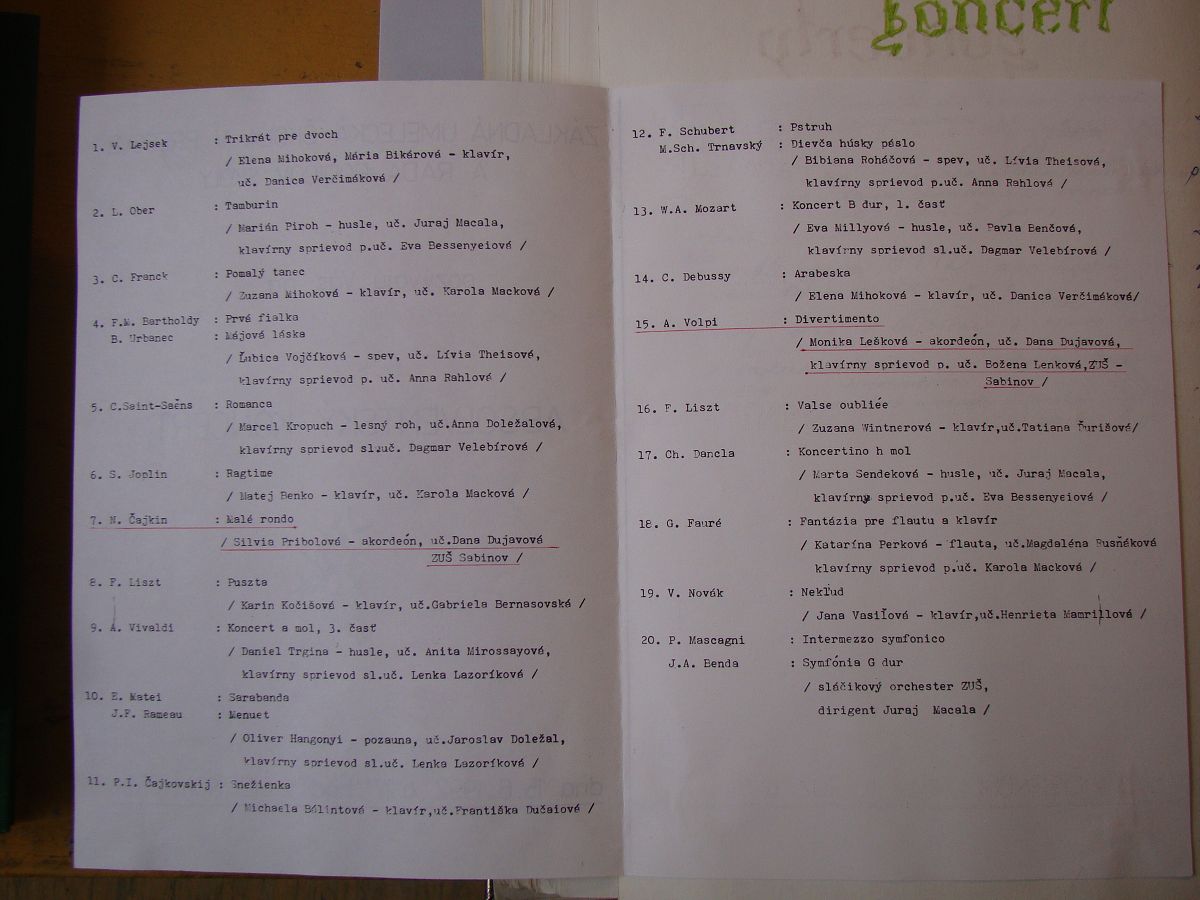 koncert
1. V. Lejsek : Trikrát pre dvoch
/ Elena Mihoková, Mária Bikárová - klavír,
uč. Danica Verčimáková /
2. L. Ober : Tamburin
/ Marián Piroh - husle, uč. Juraj Macala,
klavírny sprievod p.uč. Eva Bessenyeiová /
3. C. Franck : Pomalý tanec
/ Zuzana Mihoková - klavír, uč. Karola Macková /
4. F.M. Bartholdy : Prvé fialka
B. Urbanec : Májové láska
/ Ľubica Vojčíková - spev, uč. Lívia Theisová,
klavírny sprievod p. uč. Anna Rahlová /
5. C.Saint-Saëns : Romanca
/ Marcel Kropuch - lesný roh, uč.Anna Doležalová,
klavírny sprievod sl.uč. Dagmar Velebírová /
6. S. Joplin : Ragtime
/ Matej Benko - klavír, uč. Karola Macková /
7. N. Čajkin : Malé rondo
/ Silvia Pribolová - akordeón, uč.Dana Dujavová
ZUŠ Sabinov /
8. F. Liszt : Puszta
/ Karin Kočišová - klavír, uč.Gabriela Bernasovská /
9. A. Vivaldi : Koncert a mol, 3. časť
/ Daniel Trgina - husle, uč. Anita Mirossayová,
klavírny sprievod sl.uč. Lenka Lazoríková /
10. E. Matei : Sarabanda
J.F. Rameau : Menuet
/ Oliver Hangonyi - pozauna, uč.Jaroslav Doležal,
klavírny sprievod sl.uč. Lenka Lazoríková /
11. P.I. Čajkovskij : Snežienka
/ Michaela Bálintová - klavír,uč.Františka Dučaiová /
12. F. Schubert : Pstruh
M.Sch. Trnavský : Dievča húsky páslo
/ Bibiana Roháčová - spev, uč. Lívia Theisová,
klavírny sprievod p.uč. Anna Rahlová /
13. W.A. Mozart : Koncert B dur, 1. časť
/ Eva Millyová - husle, uč. Pavla Benčová,
klavírny sprievod sl.uč. Dagmar Velebírová /
14. C. Debussy : Arabeska
/ Elena Mihoková - klavír, uč. Danica Verčimáková/
15. A. Volpi : Divertimento
/ Monika Lešková - akordeón, uč. Dana Dujavová,
klavírny sprievod p. uč. Božena Lenková,ZUŠ -
Sabinov /
16. F. Liszt : Valse oubliée
/ Zuzana Wintnerová - klavír,uč.Tatiana Ďurišová/
17. Ch. Dancla : Koncertino h mol
/ Marta Sendeková - husle, uč. Juraj Macala,
klavírny sprievod p.uč. Eva Bessenyeiová /
18. G. Fauré : Fantázia pre flautu a klavír
/ Katarína Perková - flauta, uč.Magdaléna Rusňáková
klavírny sprievod p.uč. Karola Macková /
19. V. Novák : Nekľud
/ Jana Vasiľová - klavír,uč.Henrieta Mamrillová /
20. P. Mascagni : Intermezzo symfonico
J.A. Benda : Symfónia G dur
/ sláčikový orchester ZUŠ,
dirigent Juraj Macala /